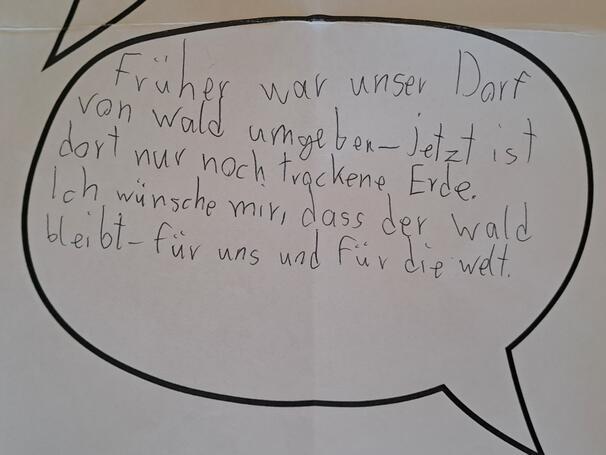 Früher war unser Dorf
von Wald umgeben – jetzt ist
dort nur noch trockene Erde.
Ich wünsche mir, dass der Wald
bleibt – für uns und für die Welt.